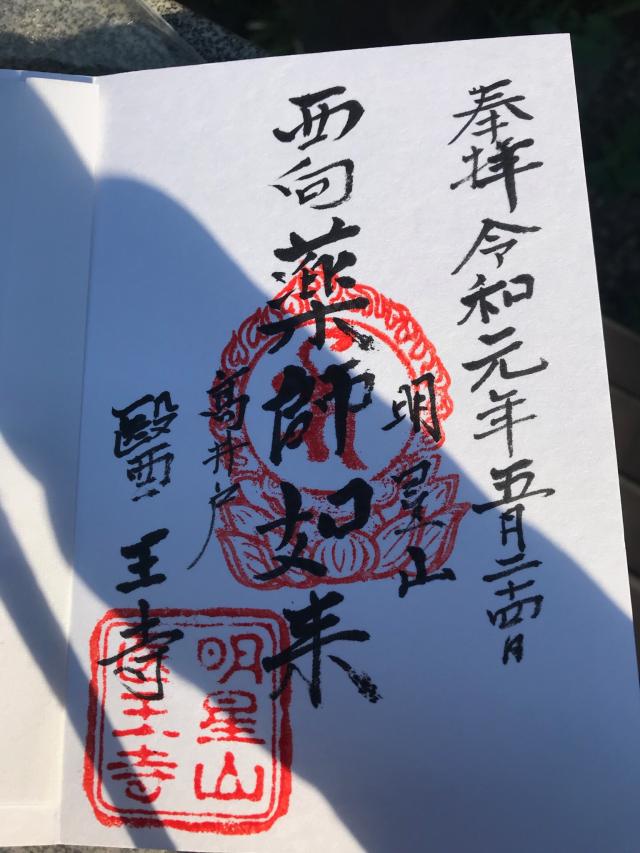 奉拝 令和元年五月二十四日
明星山
西向薬師如来
高井戸
醫王寺
明星山
醫王寺